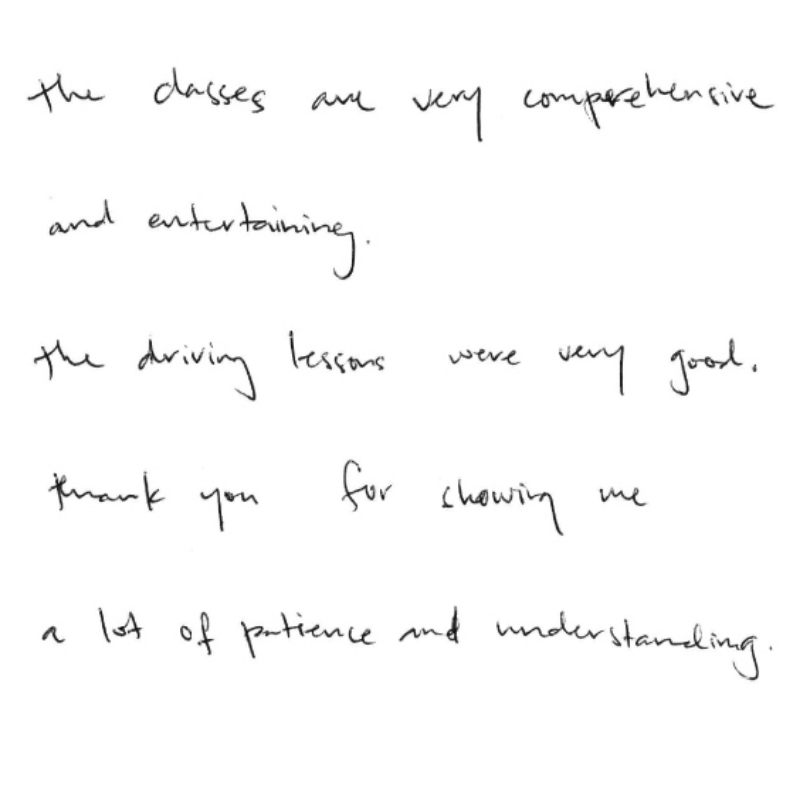 the classes are very comprehensive
and entertaining.
the driving lessons were very good.
thank you for showing me
a lot of patience and understanding.